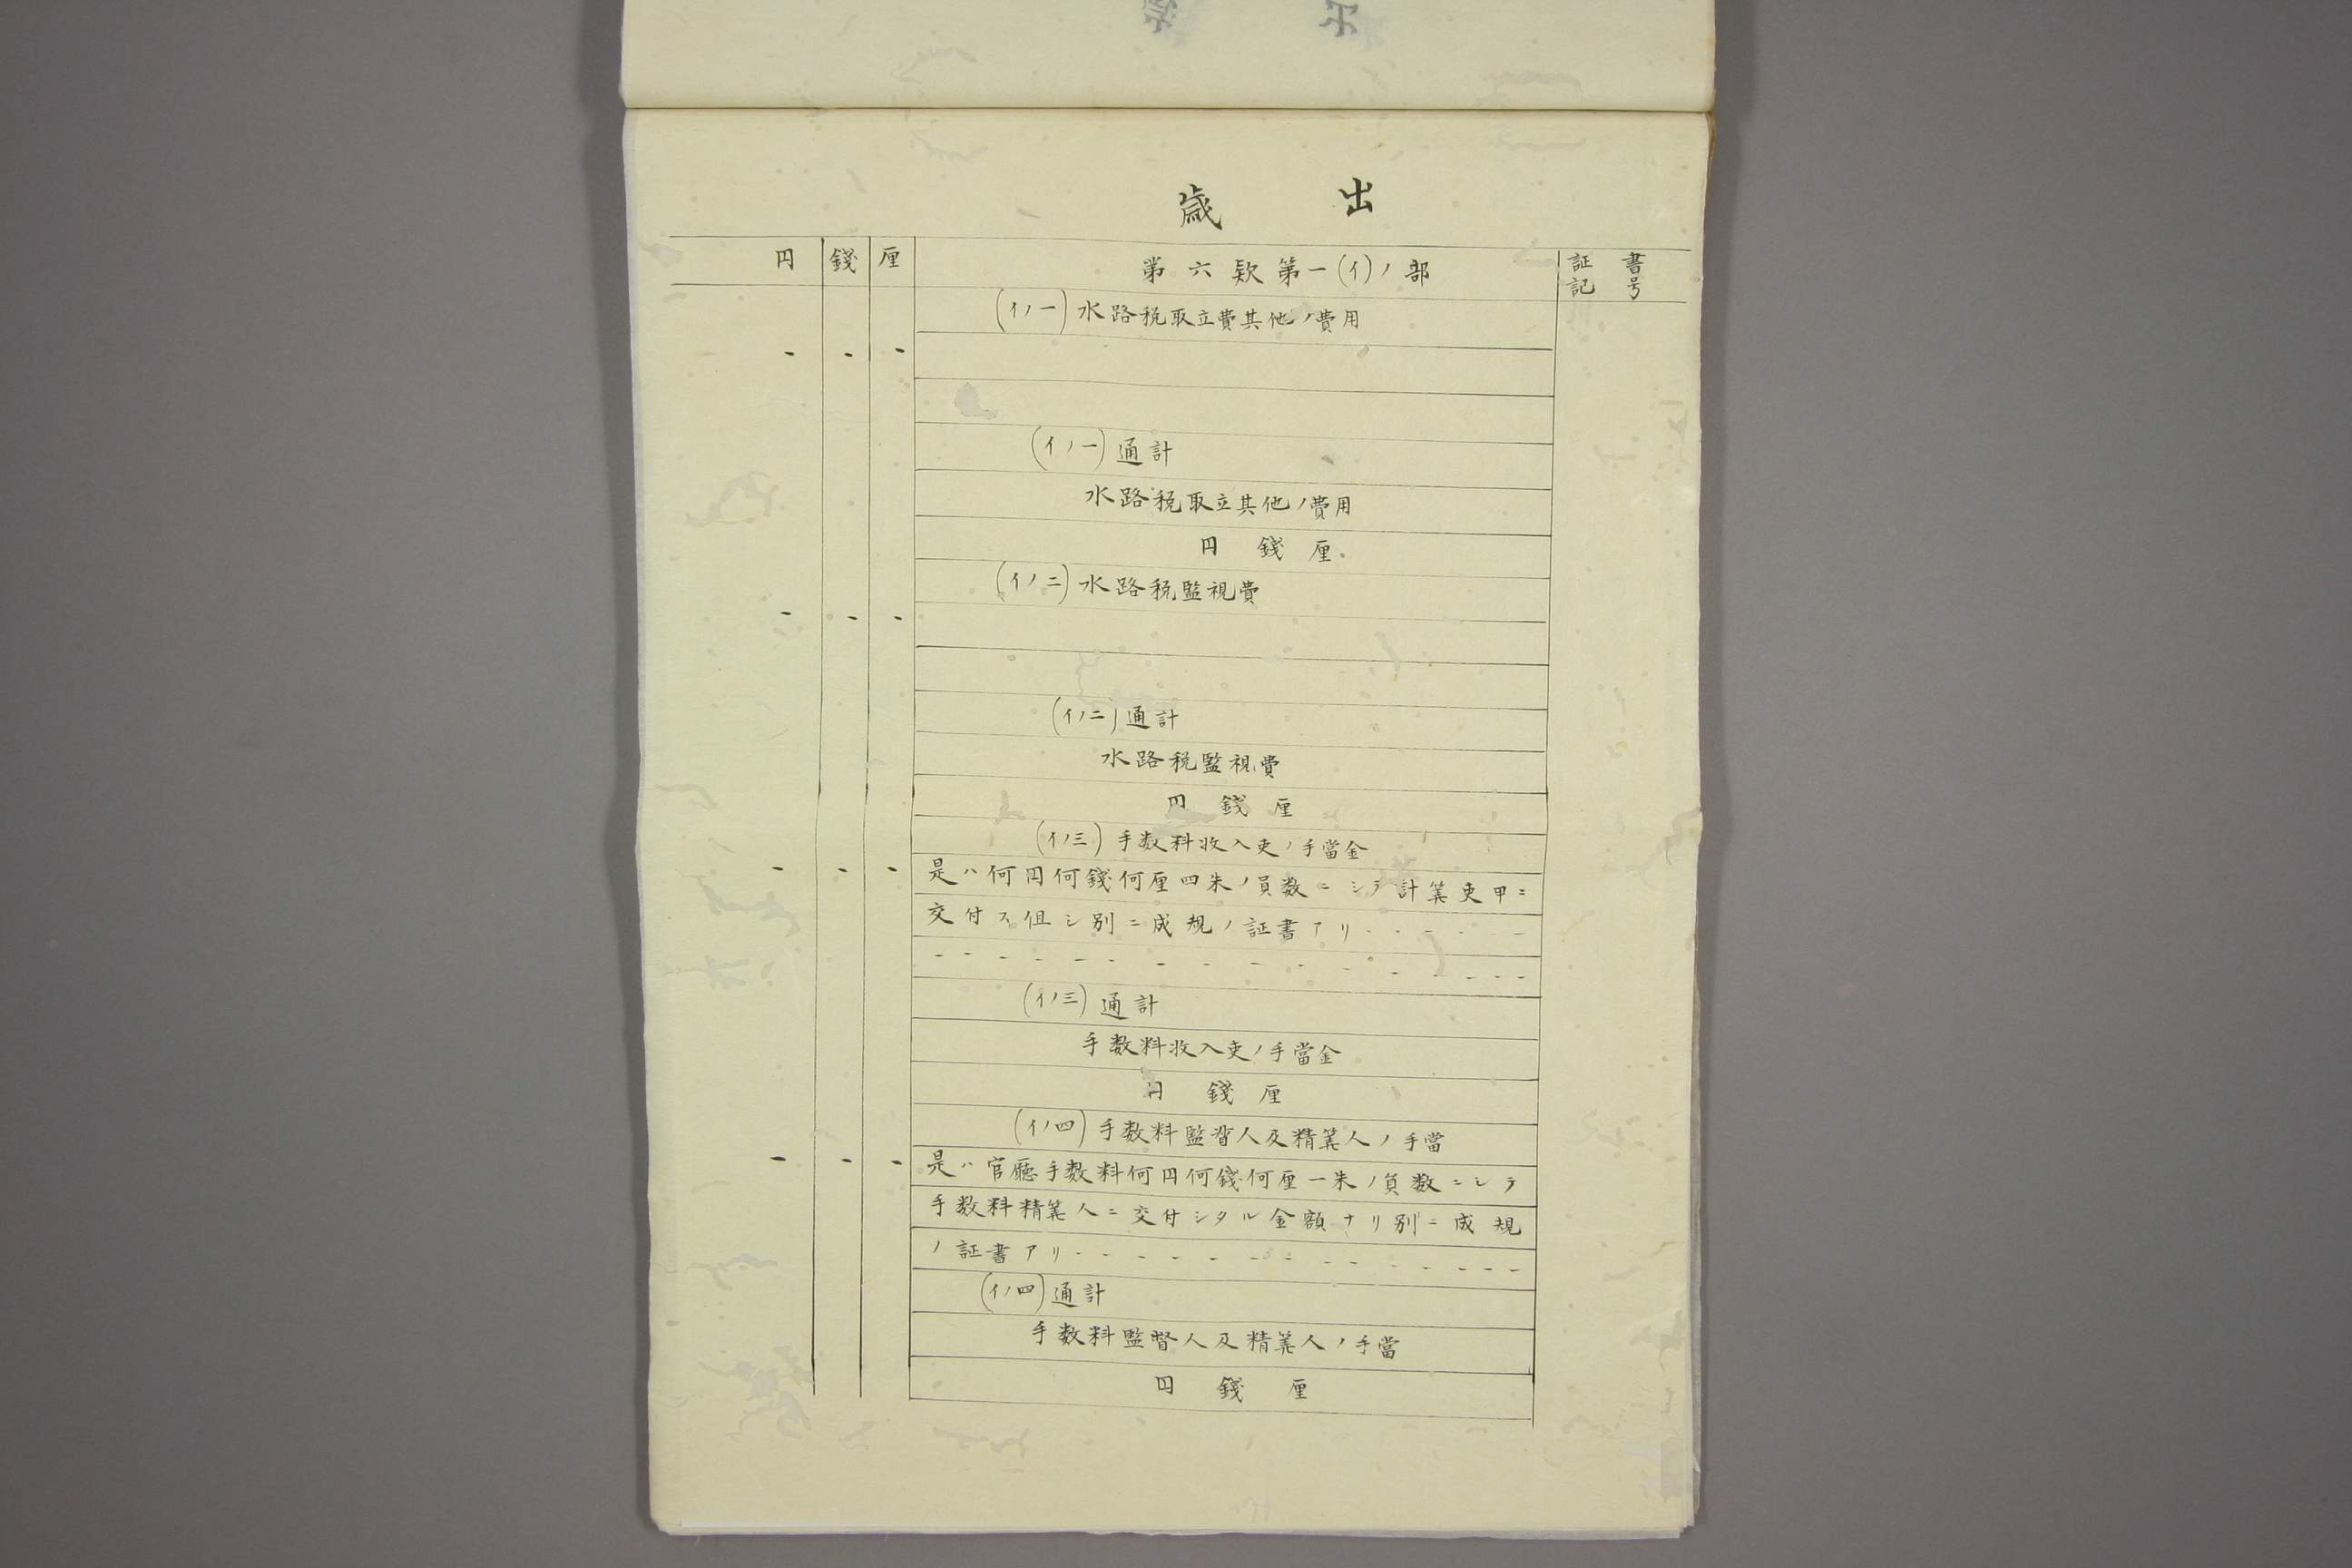 歳出
円 錢 厘 第六款第一(イ)ノ部 証書
記号
(イノ一)水路税取立費其他ノ費用
(イノ一)通計
水路税取立其他ノ費用
円 錢 厘
(イノ二)水路税監視費
(イノ二)通計
水路税監視費
円 錢 厘
(イノ三)手数料收入吏ノ手當金
是ハ何円何錢何厘四朱ノ員数ニシテ計筭吏甲ニ
交付ス但シ別ニ成規ノ証書アリ
(イノ三)通計
手数料收入吏ノ手當金
円 錢 厘
(イノ四)手数料監督人及精筭人ノ手當
是ハ官廳手数料何円何錢何厘一朱ノ負数ニシテ
手数料精筭人ニ交付シタル金額ナリ別ニ成規
ノ証書アリ
(イノ四)通計
手数料監督人及精筭人ノ手當
円 錢 厘